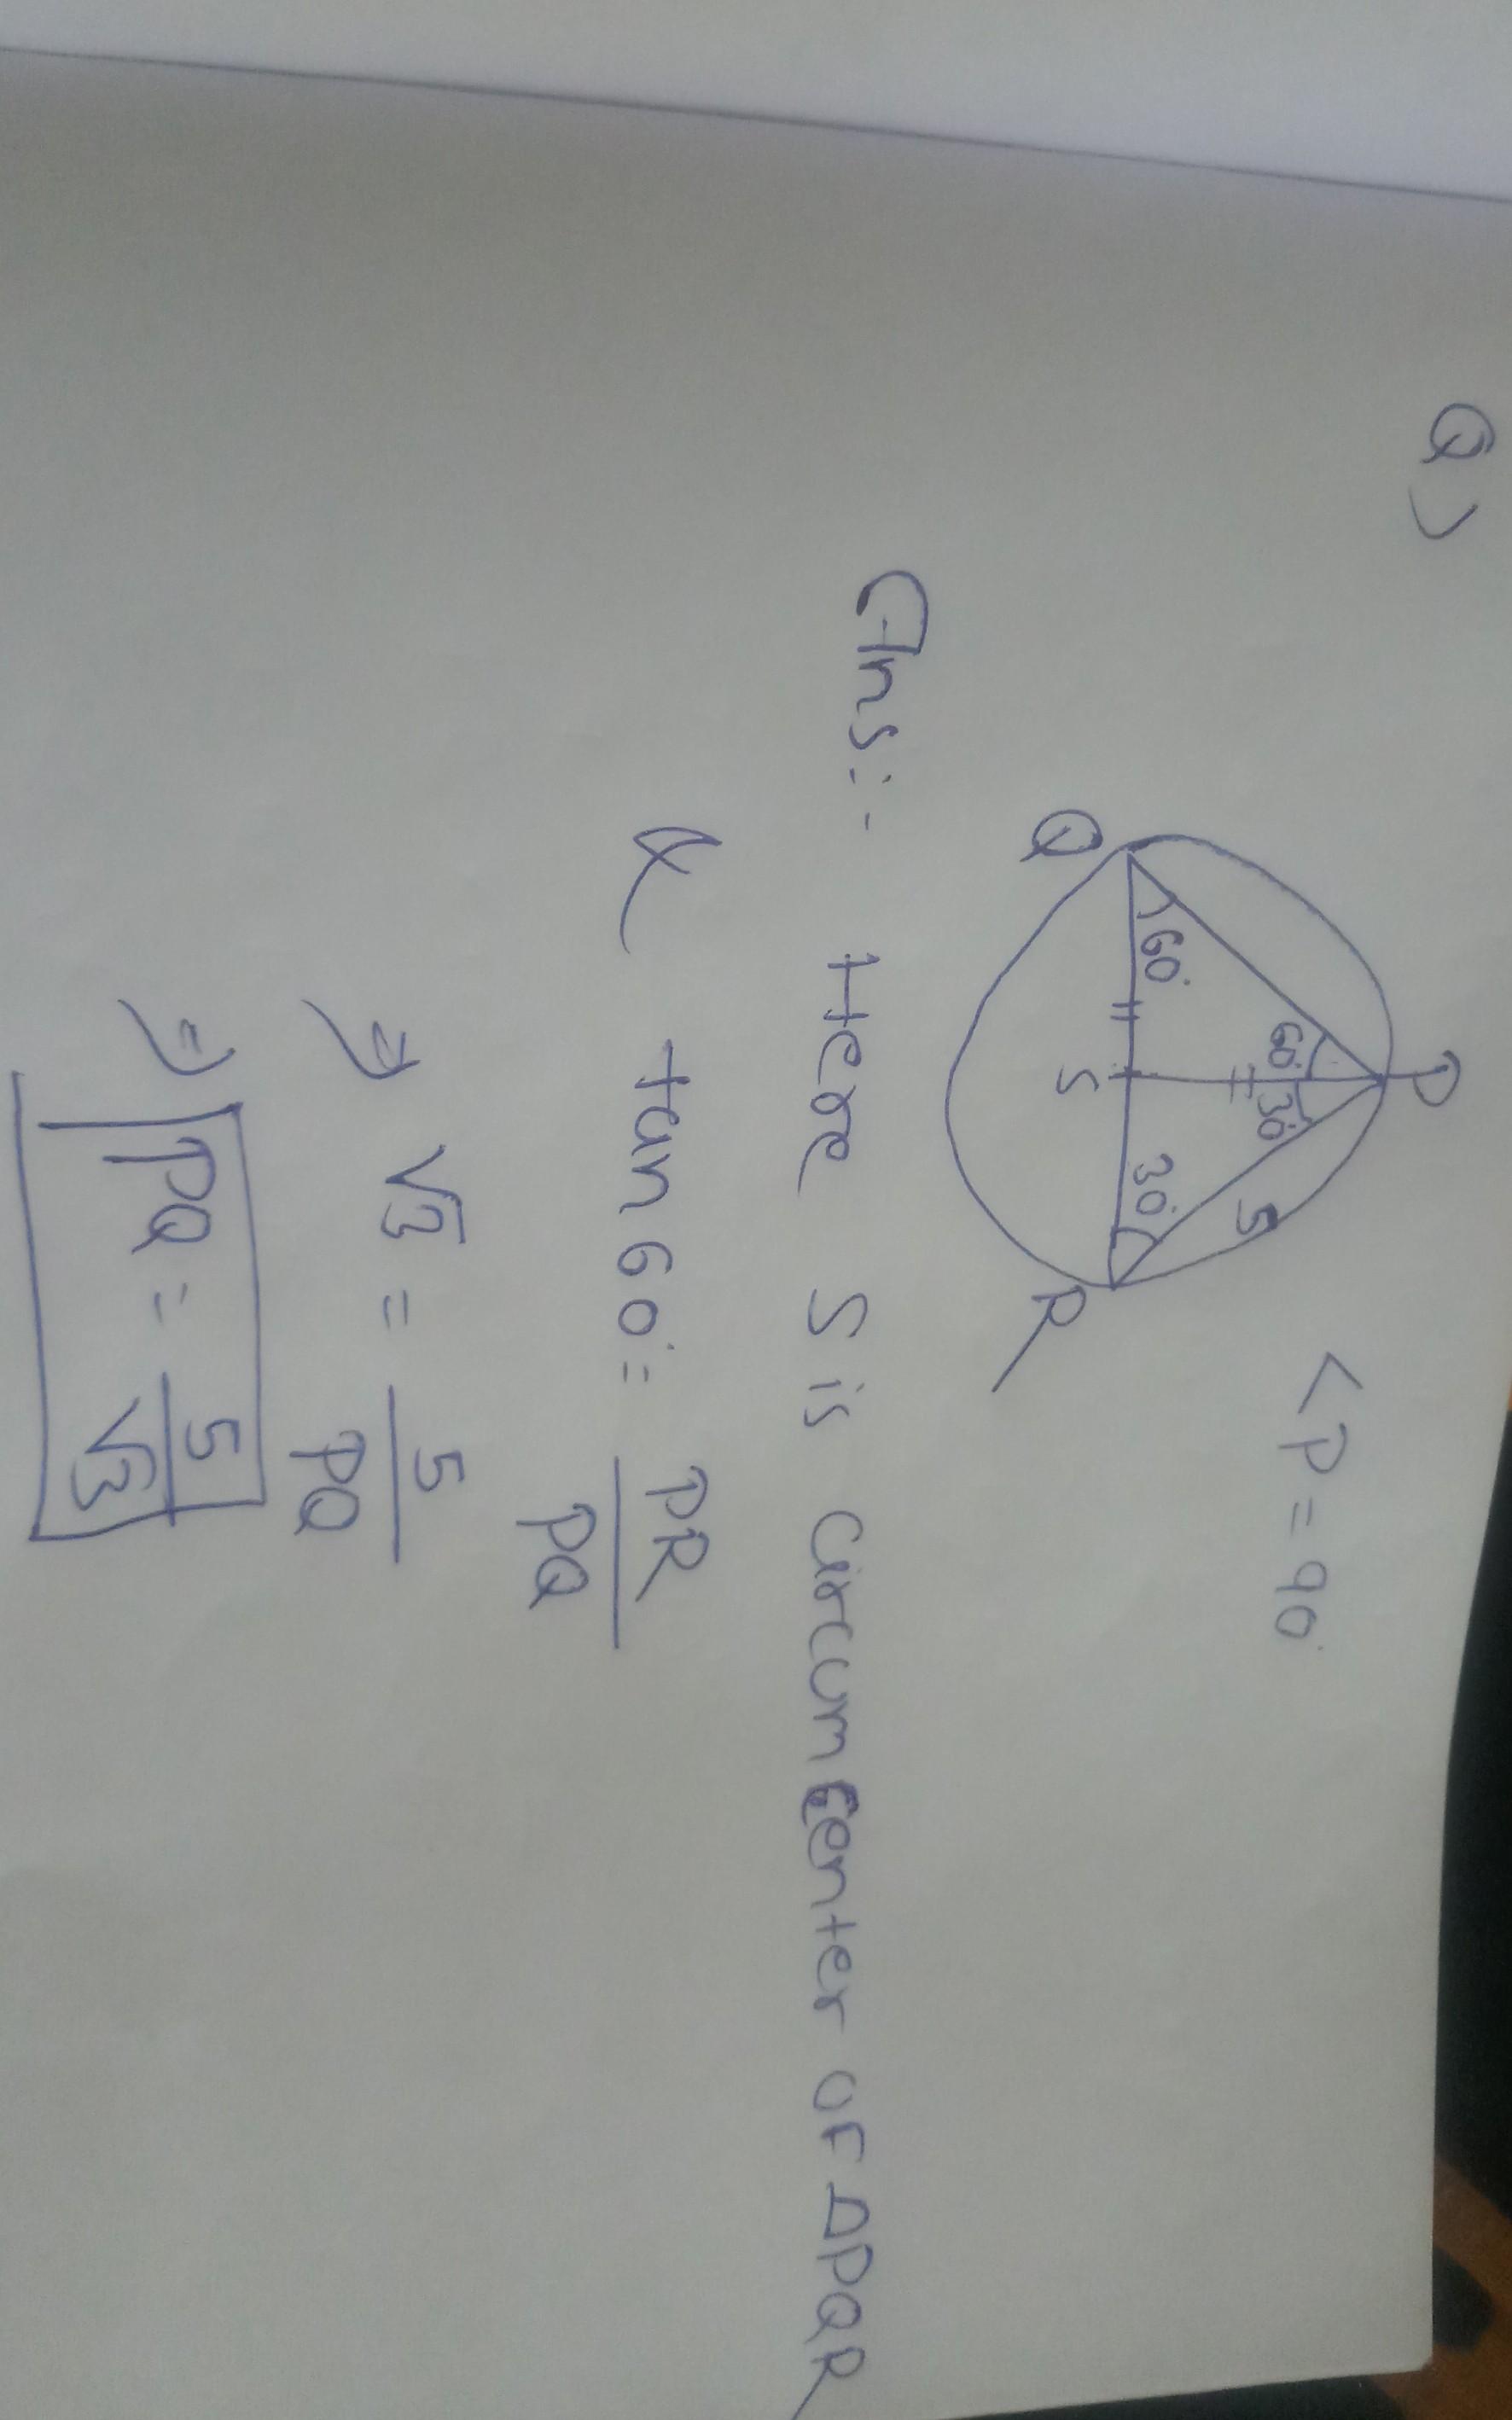 Q>
P
<P = 90°
60° 30°
5
60° 30°
Q S R
Ans:- Here S is circumcenter of ΔPQR
& tan60° = PR/PQ
⇒ √3 = 5/PQ
⇒ PQ = 5/√3